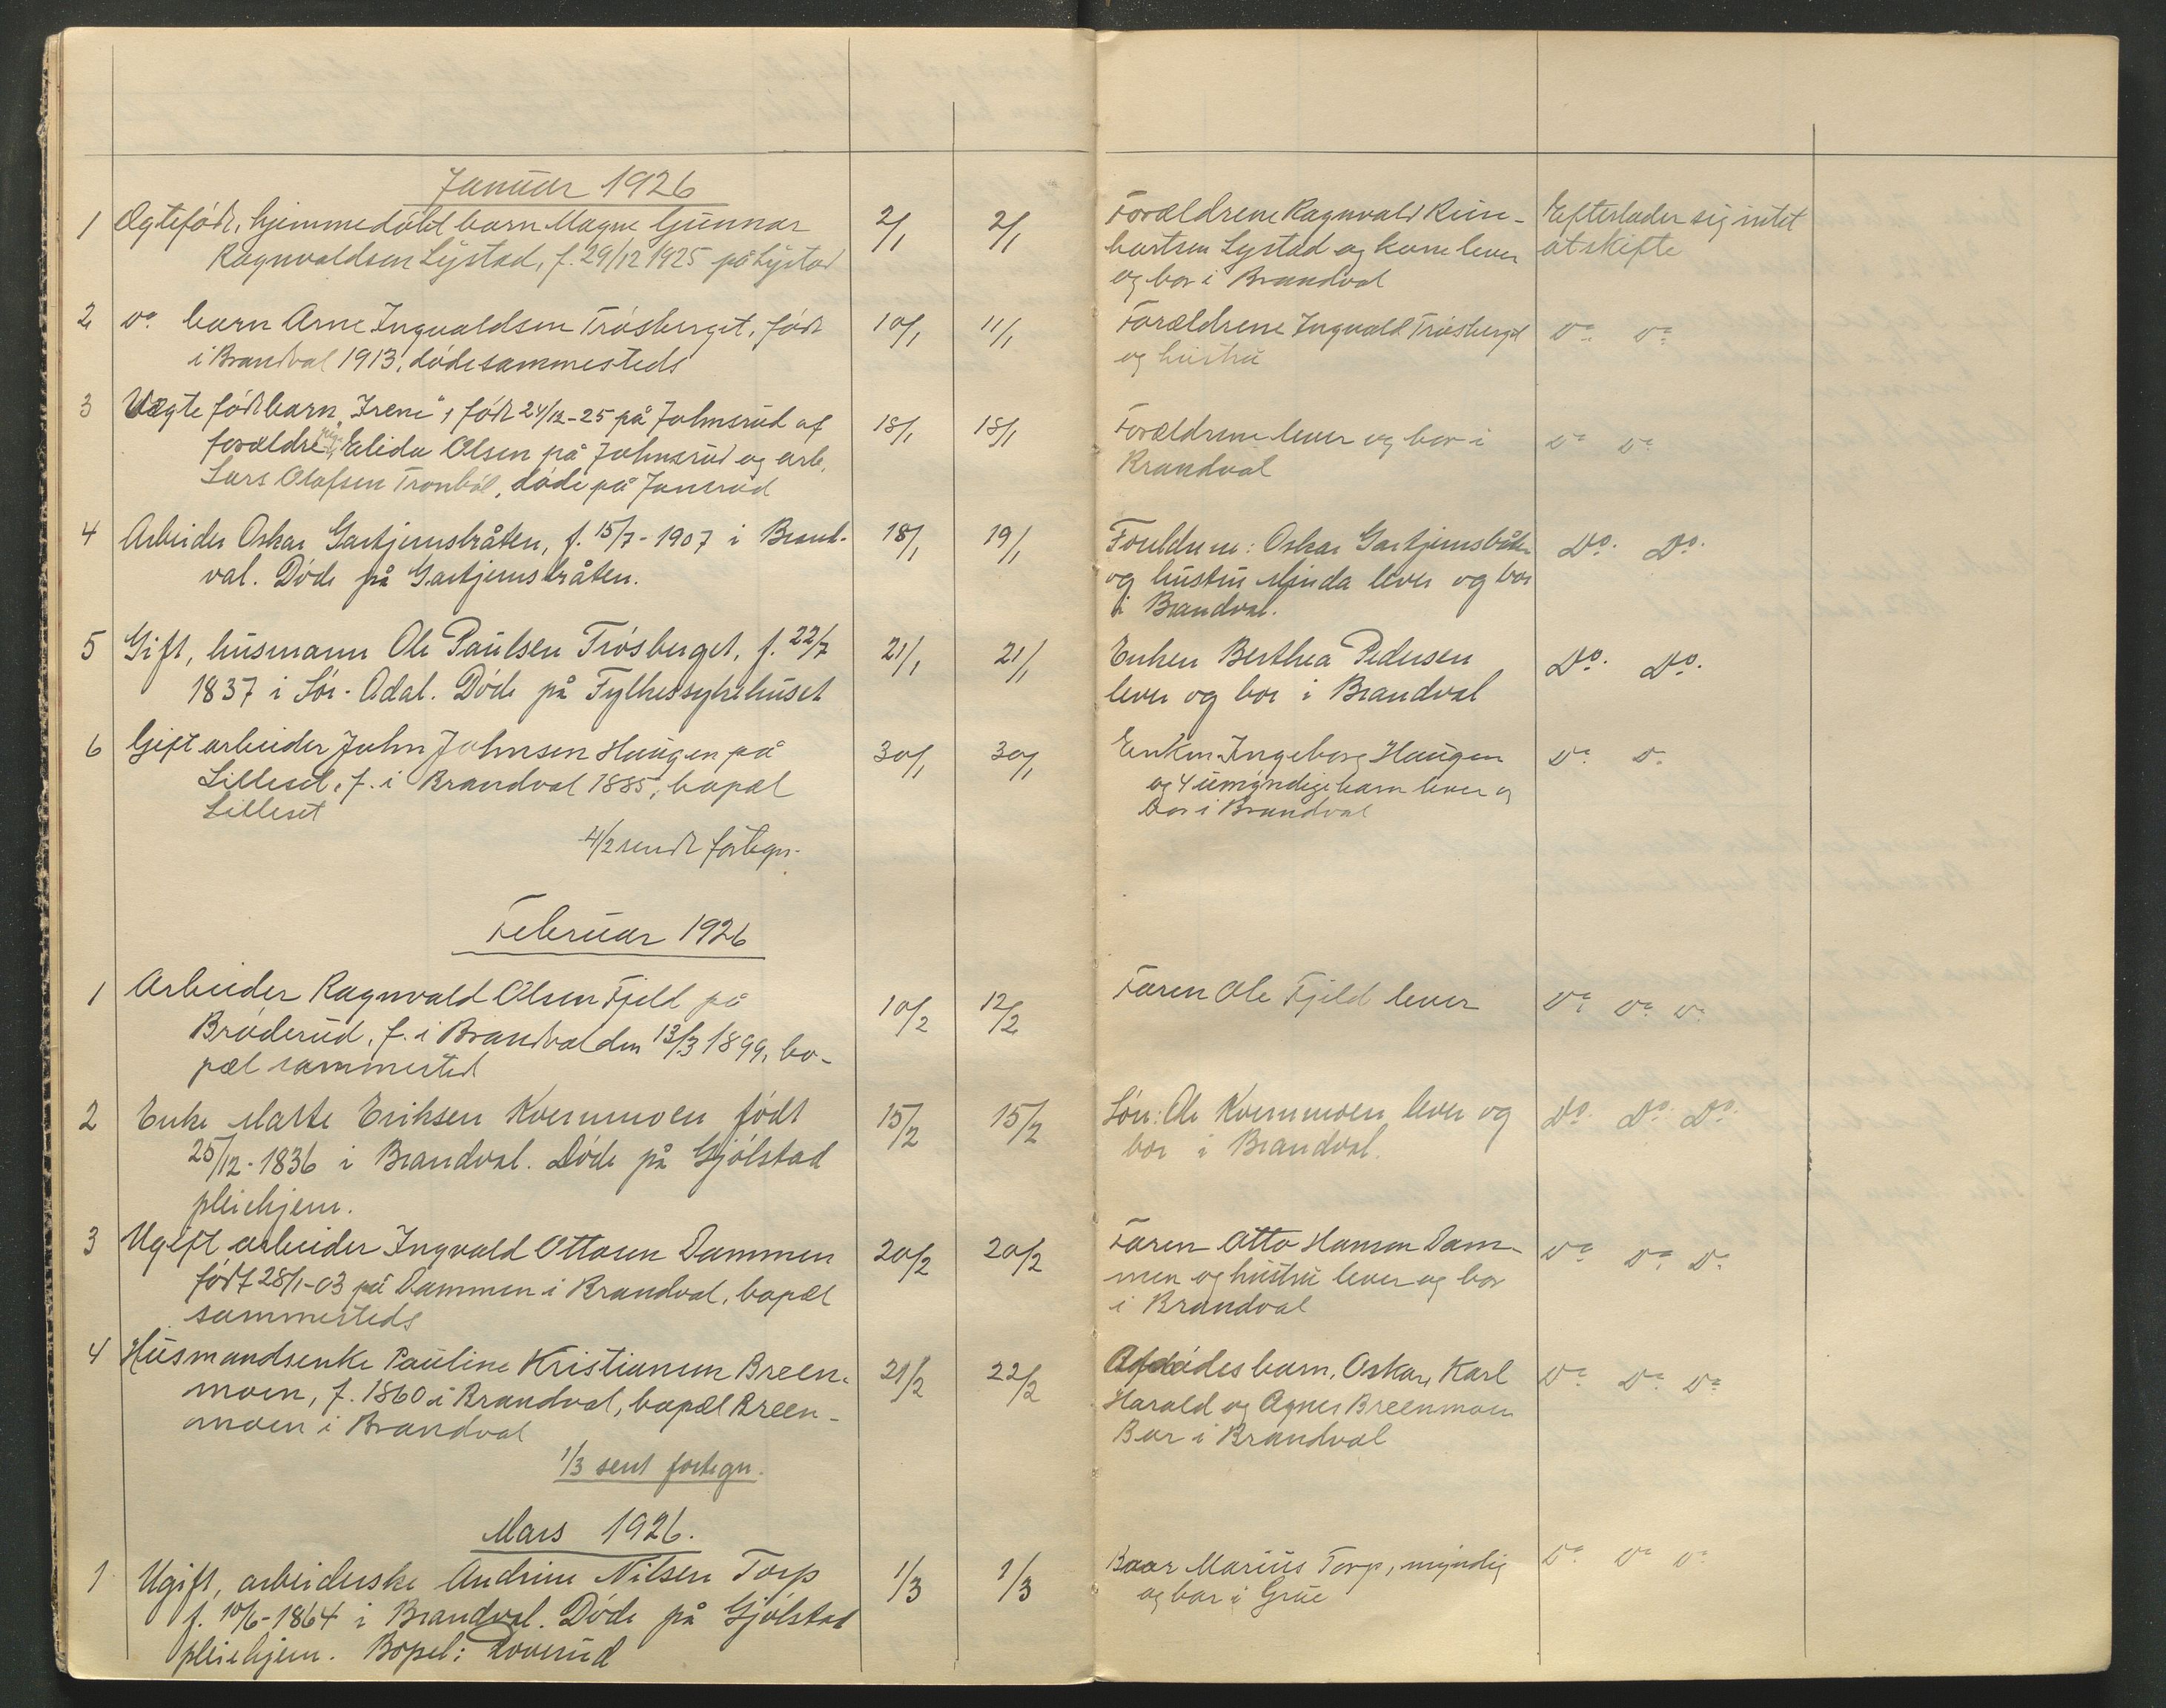 Januar 1926
1 Ægtefødt, hjemmedøbt barn Magne Gunnar 2/1 2/1 Forældrene Ragnvald Rein- Efterlader sig intet
Ragnvaldsen Lystad, f. 29/12 1925 på Lystad hartsen Lystad og kone lever at skifte
og bor i Brandval
2 Do. barn Arne Ingvaldsen Trøsberget, født 10/1 11/1 Forældrene Ingvald Trøsberget Do. Do.
i Brandval 1913, døde sammesteds og hustru
3 Uægte født barn "Irene", født 24/12-25 på Johnsrud af 18/1 18/1 Forældrene lever og bor i Do. Do.
forældre pige Elida Olsen på Johnsrud og arb. Brandval
Lars Olafsen Tronbøl, døde på Jonsrud
4 Arbeider Oskar Gartjernsbråten, f. 15/7-1907 i Brand- 18/1 19/1 Foreldrene: Oskar Gartjernsbråten Do. Do.
val. Døde på Gartjernsbråten. og hustru Minda lever og bor
i Brandval.
5 Gift, husmann Ole Paulsen Trøsberget, f. 22/7 21/1 21/1 Enken Berthea Pedersen Do. Do.
1837 i Sør-Odal. Døde på Fylkessykehuset lever og bor i Brandval
6 Gift arbeider John Johnsen Haugen på 30/1 30/1 Enken Ingeborg Haugen Do. Do.
Lilleset, f. i Brandval 1885, bopæl og 4 umyndige barn lever og
Lilleset bor i Brandval
4/2 sendt fortegn.
Februar 1926
1 Arbeider Ragnvald Olsen Fjeld på 10/2 12/2 Faren Ole Fjeld lever Do. Do. Do.
Brøderud, f. i Brandval den 13/3 1899, bo-
pæl sammested
2 Enke Marte Eriksen Kvernmoen født 15/2 15/2 Søn: Ole Kvernmoen lever og Do. Do. Do.
25/12-1836 i Brandval. Døde på Gjølstad bor i Brandval.
pleiehjem.
3 Ugift arbeider Ingvald Ottosen Dammen 20/2 20/2 Faren Otto Hansen Dam- Do. Do. Do.
født 28/1-03 på Dammen i Brandval, bopæl men og hustru lever og bor
sammesteds i Brandval
4 Husmandsenke Pauline Kristiansen Breen- 21/2 22/2 Afdødes barn, Oskar, Karl Do. Do. Do.
moen, f. 1860 i Brandval, bopæl Breen- Harald og Agnes Breenmoen
moen i Brandval Bor i Brandval
1/3 sent fortegn.
Mars 1926.
1 Ugift, arbeiderske Andrine Nilsen Torp 1/3 1/3 Broor Marius Torp, myndig Do. Do. Do.
f. 10/6-1864 i Brandval. Døde på Gjølstad og bor i Grue
pleiehjem. Bopel: Roverud